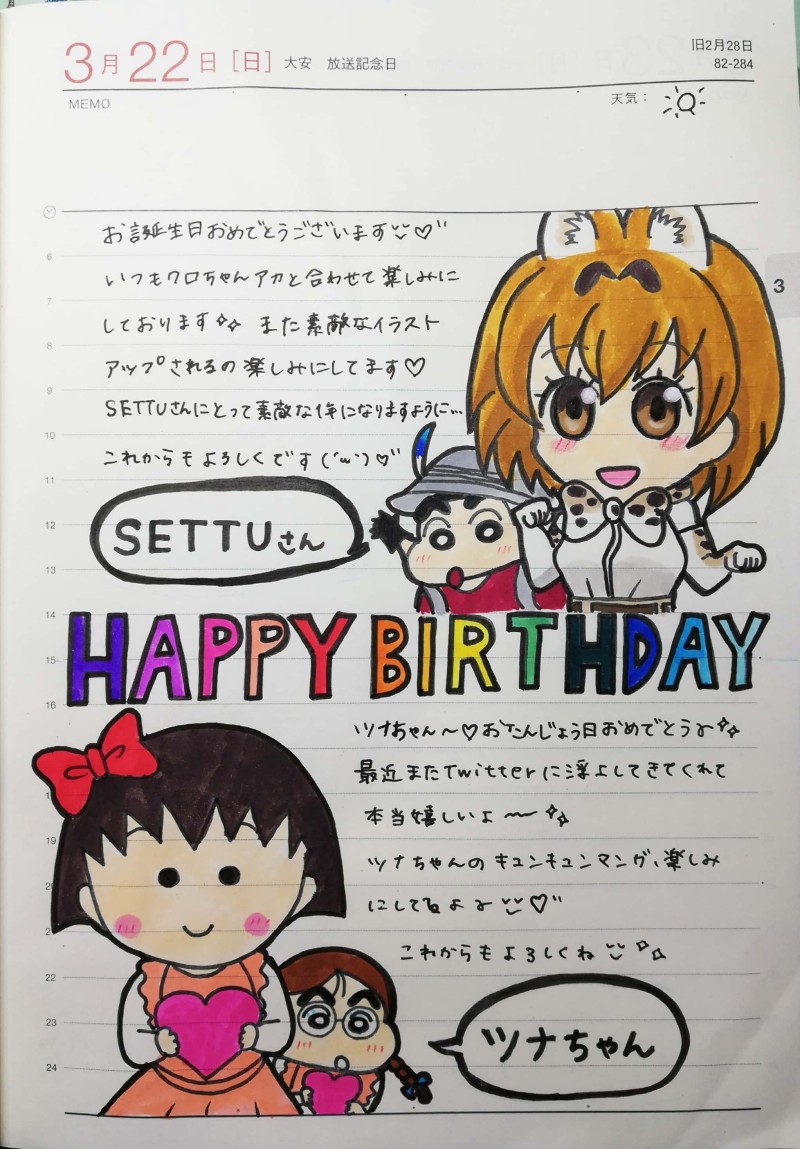 3月22日[日] 大安 放送記念日
旧2月28日
82-284
MEMO
天気:
お誕生日おめでとうございます♡
いつもクロちゃんアカと合わせて楽しみに
しております また素敵なイラスト
アップされるの楽しみにしてます♡
SETTUさんにとって素敵な1年になりますように…
これからもよろしくです(´ω`)♡
SETTUさん
HAPPY BIRTHDAY
ツナちゃん〜♡おたんじょう日おめでとう〜
最近またTwitterに浮上してきてくれて
本当嬉しいよ〜
ツナちゃんのキュンキュンマンガ、楽しみ
にしてるよ〜♡
これからもよろしくね
ツナちゃん
3
6
7
8
9
10
11
12
13
14
15
16
18
19
20
21
22
23
24